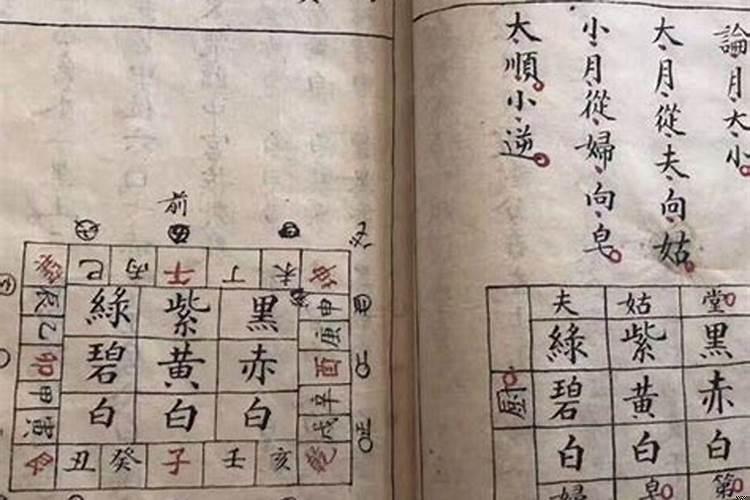 論月大小
大月從夫向姑
小月從婦向皂
大順小逆
夫 姑 堂
綠 紫 黑
廚 碧 黃 赤
白 白 白
婦 皂 第
前
巽 巳 丙 午 丁 未 坤
辰 綠 紫 黑 申
乙 庚
卯 碧 黃 赤 酉
甲 辛
寅 白 白 白 戌
艮 丑 癸 子 壬 亥 乾